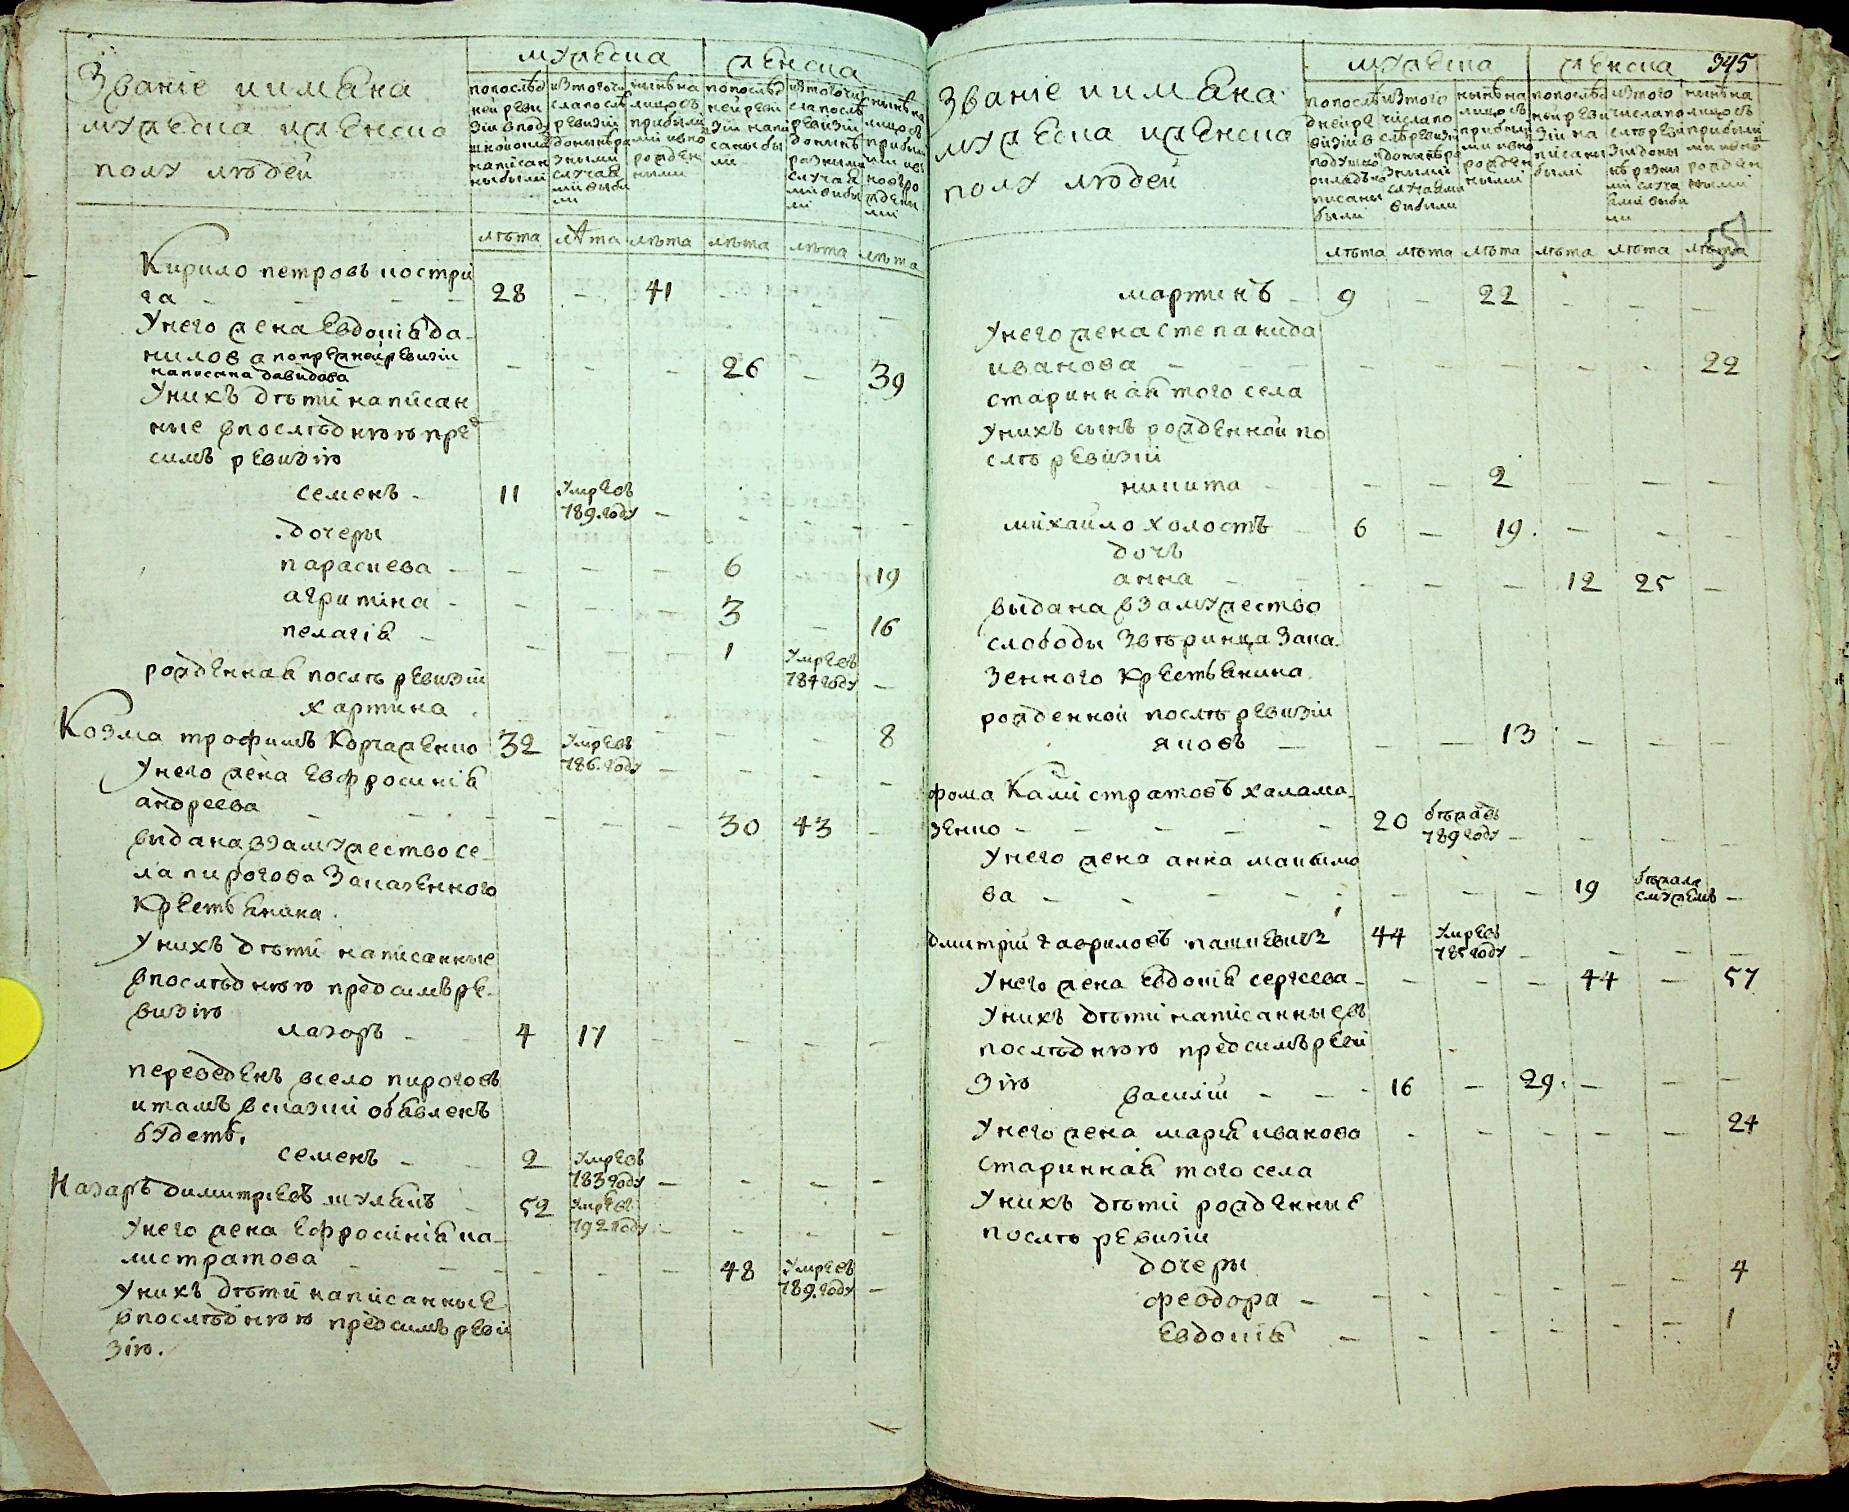 Званіе и имяна
мужеска и женска
полу людей
мужеска
женска
попослѣд
ней реви
зіи в под
написан
ны были
изтого чи
сла послѣ
ревизіи
донынѣ ра
зными
случая
ми выбы
ли
нынѣ на
лицо съ
прибылы
ми и вно
рожден
ными
попослѣд
ней реви
зіи напи
саны бы
ли
изтого чи
сла послѣ
ревизіи
донынѣ
разными
случая
ми выбы
ли
нынѣ на
лицо съ
прибылы
ми и в
новь ро
жденны
ми
лѣта лѣта лѣта лѣта лѣта лѣта
Кирило петровъ костри
га - 28 - 41 - - -
У него жена Евдокія да
нилова по прежней ревизіи
написана давидова - - - 26 - 39
У нихъ дѣти написан
ные в послѣднюю пред
симъ ревизію
семенъ - 11 умре въ
789. году - - - -
дочери
параскева - - - - 6 19
агрипина - - - - 3 - 16
пелагія - - - - 1 умре въ
784 году -
рожденная послѣ ревизіи
хартина - - - 8
Козма трофимъ Коржаденко 32 умре въ
786. году - - - -
У него жена Евфросинія
андреева - - - - 30 43 -
выдана в замужество се
ла пирогова за казенного
крестьянина.
У нихъ дѣти написанные
в послѣднюю предсимъ ре
визію
лазоръ - 4 17 - - - -
переведенъ в село пироговъ
и тамъ в сказки объявленъ
будетъ.
семенъ - 2 умре въ
783 году - - - -
Назаръ димитріевъ шулякъ - 52 умре въ
792 году - - - -
У него жена Ефросинія ка
листратова - - - - 48 умре въ
789. году -
У нихъ дѣти написанные
в послѣднюю предсимъ реви
зію.
345
Званіе и имяна
мужеска и женска
полу людей
мужеска
женска
попослѣ
дней ре
визіи в
писаны
были
изтого
числа по
слѣ ревизи
и донынѣ ра
зными
случаями
выбыли
нынѣ на
лицо съ
прибылы
ми и вно
рожден
ными
попослѣд
ней реви
зіи на
писаны
были
изтого
числа по
слѣ реви
зіи доны
нѣ разны
ми случа
ями выбы
ли
нынѣ на
лицо съ
прибылы
ми и вно
рожден
ными
55
лѣта лѣта лѣта лѣта лѣта лѣта
мартинъ - 9 - 22 - - -
У него жена степанида
иванова - - - - - - 22
старинная того села
У нихъ сынъ рожденной по
слѣ ревизіи
никита - - - 2 - -
михайло холостъ - 6 - 19. - - -
дочь
анна - - - - 12 25 -
выдана в замужество
слободы звѣринца за ка
зенного крестьянина.
рожденной послѣ ревизіи
яковъ - - - 13 - - -
фома Калистратовъ халама
зенко - - - - 20 бѣжа въ
789 году - - - -
У него жена анна макымо
ва - - - - - - - 19 бѣжала
с мужемъ -
дмитрій гавриловъ пашкевичъ 44 умре въ
785 году - - - -
У него жена Евдокія сергѣева - - - - 44 - 57
У нихъ дѣти написанные въ
послѣднюю предсимъ реви
зію
василій - - - 16 - 29. - - -
У него жена марія иванова - - - - - 24
старинная того села
У нихъ дѣти рожденные
послѣ ревизіи
дочери
феодора - - - - - - 4
Евдокія - - - - - - 1